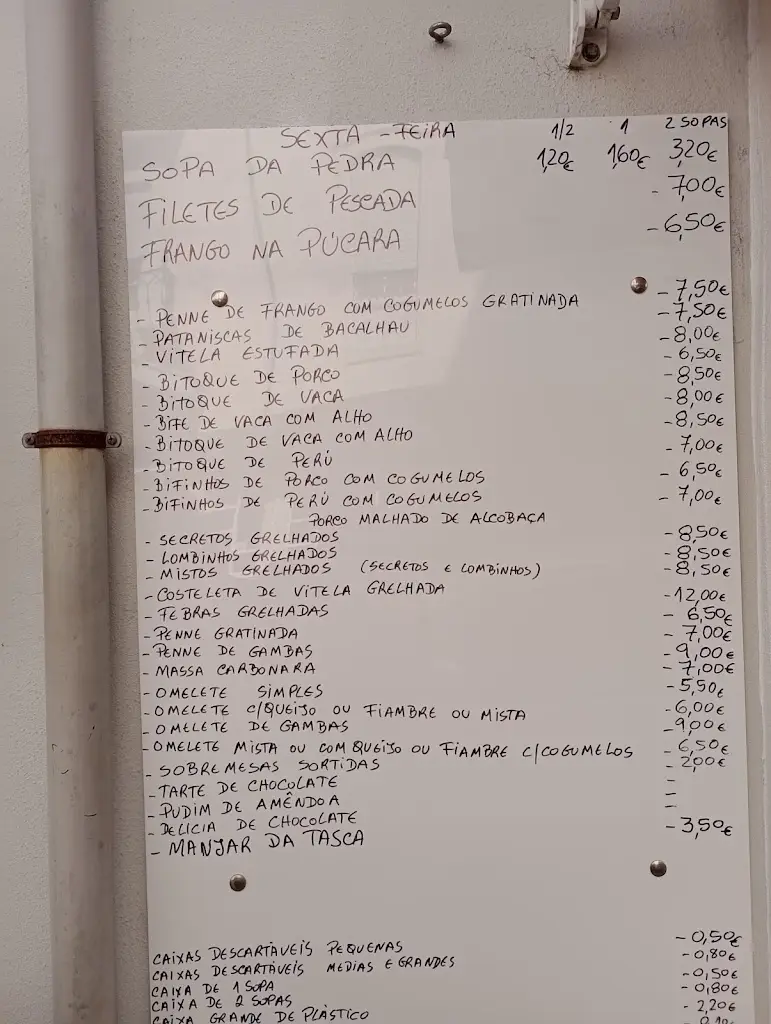 SEXTA-FEIRA 1/2 1 2 SOPAS
SOPA DA PEDRA 1,20€ 1,60€ 3,20€
FILETES DE PESCADA - 7,00€
FRANGO NA PÚCARA - 6,50€
- PENNE DE FRANGO COM COGUMELOS GRATINADA - 7,50€
- PATANISCAS DE BACALHAU - 7,50€
- VITELA ESTUFADA - 8,00€
- BITOQUE DE PORCO - 6,50€
- BITOQUE DE VACA - 8,50€
- BIFE DE VACA COM ALHO - 8,00€
- BITOQUE DE VACA COM ALHO - 8,50€
- BITOQUE DE PERÚ - 7,00€
- BIFINHOS DE PORCO COM COGUMELOS - 6,50€
- BIFINHOS DE PERÚ COM COGUMELOS - 7,00€
PORCO MALHADO DE ALCOBAÇA
- SECRETOS GRELHADOS - 8,50€
- LOMBINHOS GRELHADOS - 8,50€
- MISTOS GRELHADOS (SECRETOS E LOMBINHOS) - 8,50€
- COSTELETA DE VITELA GRELHADA - 12,00€
- FEBRAS GRELHADAS - 6,50€
- PENNE GRATINADA - 7,00€
- PENNE DE GAMBAS - 9,00€
- MASSA CARBONARA - 7,00€
- OMELETE SIMPLES - 5,50€
- OMELETE C/QUEIJO OU FIAMBRE OU MISTA - 6,00€
- OMELETE DE GAMBAS - 9,00€
- OMELETE MISTA OU COM QUEIJO OU FIAMBRE C/COGUMELOS - 6,50€
- SOBREMESAS SORTIDAS - 2,00€
- TARTE DE CHOCOLATE -
- PUDIM DE AMÊNDOA -
- DELICIA DE CHOCOLATE -
- MANJAR DA TASCA - 3,50€
CAIXAS DESCARTÁVEIS PEQUENAS - 0,50€
CAIXAS DESCARTÁVEIS MEDIAS E GRANDES - 0,80€
CAIXA DE 1 SOPA - 0,50€
CAIXA DE 2 SOPAS - 0,80€
CAIXA GRANDE DE PLÁSTICO - 2,20€